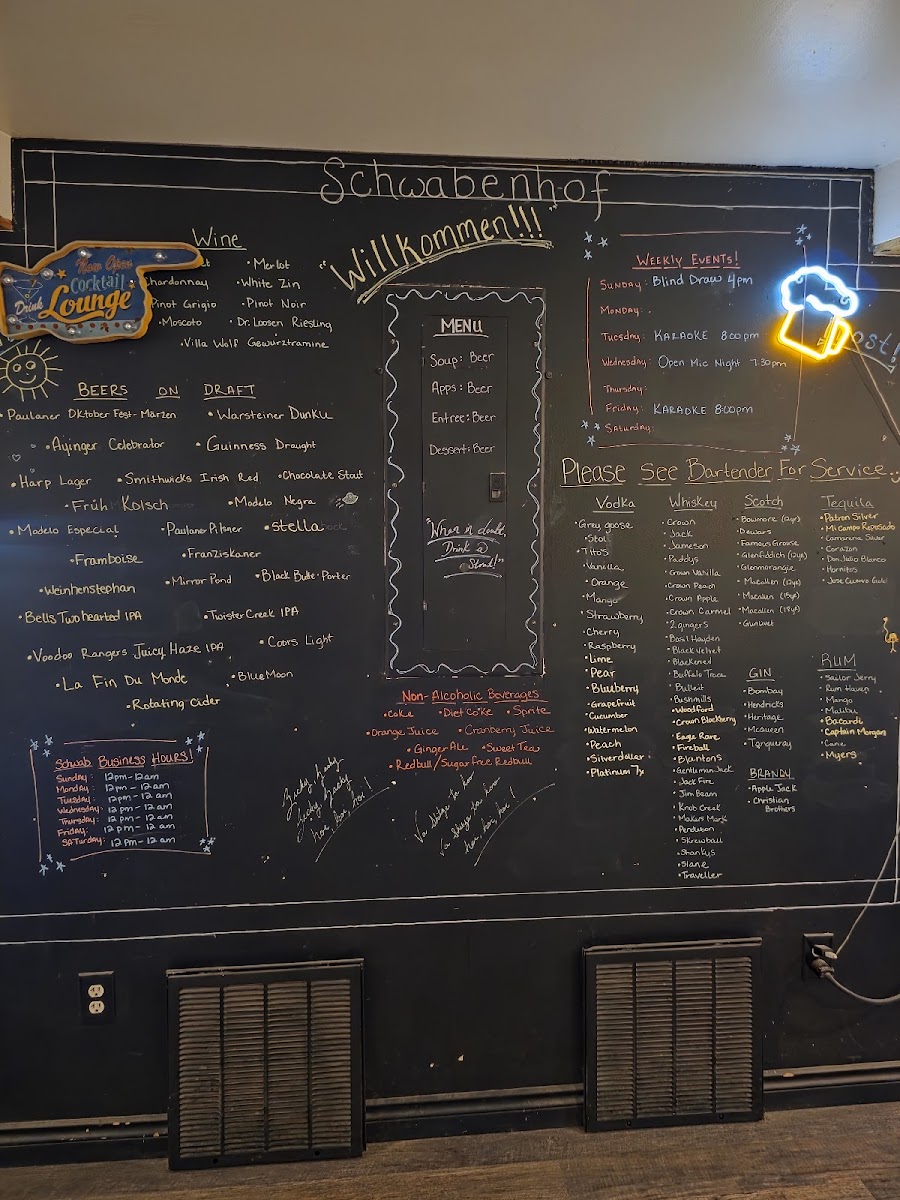 Schwabenhof
"Willkommen!!!"
Wine
• Merlot
Chardonnay
• White Zin
Pinot Grigio
• Pinot Noir
• Moscato
• Dr. Loosen Riesling
• Villa Wolf Gewurztramine
Now Open
Cocktail
Drink
Lounge
BEERS ON DRAFT
• Paulaner Oktober Fest-Marzen
• Warsteiner Dunku
• Ayinger Celebrator
• Guinness Draught
• Harp Lager
• Smithwicks Irish Red
• Chocolate Stout
• Früh Kolsch
• Modelo Negra
• Modelo Especial
• Paulaner Pilsner
• stella
• Framboise
• Franziskaner
• Weinhenstephan
• Mirror Pond
• Black Butte Porter
• Bells Two hearted IPA
• Twister Creek IPA
• Voodoo Rangers Juicy Haze IPA
• Coors Light
• La Fin Du Monde
• Blue Moon
• Rotating Cider
Schwab Business Hours!
Sunday: 12pm-12am
Monday: 12pm-12am
Tuesday: 12pm-12am
Wednesday: 12pm-12am
Thursday: 12pm-12am
Friday: 12pm-12am
Saturday: 12pm-12am
MENU
Soup: Beer
Apps: Beer
Entree: Beer
Dessert: Beer
"When n doubt,
Drink a
Stout!"
Non-Alcoholic Beverages
• Coke
• Diet Coke
• Sprite
• Orange Juice
• Cranberry Juice
• Ginger Ale
• Sweet Tea
• Redbull/Sugar free Redbull
WEEKLY EVENTS!
Sunday: Blind Draw 4pm
Monday:
Tuesday: KARAOKE 8:00pm
Wednesday: Open Mic Night 7:30pm
Thursday:
Friday: KARAOKE 8:00pm
Saturday:
ost!
Please See Bartender For Service
Vodka
• Grey goose
• Stoli
• Titos
• Vanilla
• Orange
• Mango
• Strawberry
• Cherry
• Raspberry
• Lime
• Pear
• Blueberry
• Grapefruit
• Cucumber
• Watermelon
• Peach
• Silverdollar
• Platinum 7x
Whiskey
• Crown
• Jack
• Jameson
• Paddys
• Crown Vanilla
• Crown Peach
• Crown Apple
• Crown Carmel
• 2 gingers
• Basil Hayden
• Black Velvet
• Blackened
• Buffalo Trace
• Bulleit
• Bushmills
• Woodford
• Crown Blackberry
• Eagle Rare
• Fireball
• Blantons
• Gentleman Jack
• Jack Fire
• Jim Beam
• Knob Creek
• Makers Mark
• Pendleton
• Skrewball
• Shankys
• Slane
• Traveller
Scotch
• Bowmore (12yr)
• Dewars
• Famous Grouse
• Glenfiddich (12yr)
• Glenmorangie
• Macallen (12yr)
• Macallen (15yr)
• Macallen (18yr)
GIN
• Bombay
• Hendricks
• Heritage
• Mcqueen
• Tanqueray
BRANDY
• Apple Jack
• Christian
Brothers
Tequila
• Patron Silver
• Mi campo Reposado
• Camarena Silver
• Corazon
• Don Julio Blanco
• Hornitos
• Jose Cuervo Gold
RUM
• Sailor Jerry
• Rum Haven
• Mango
• Malibu
• Bacardi
• Captain Morgan
• Cane
• Myers